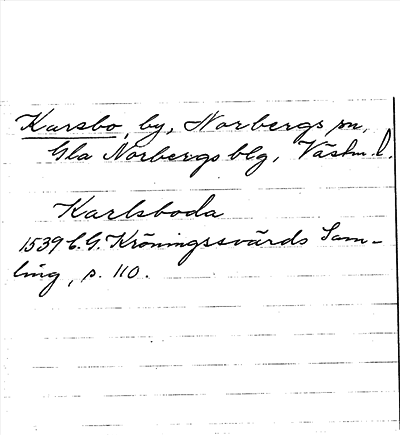 Karsbo, by, Norbergs sn,
Gla Norbergs blg, Västm. l.
Karlsboda
1539 C.G. Kröningssvärds Sam-
ling, p. 110.